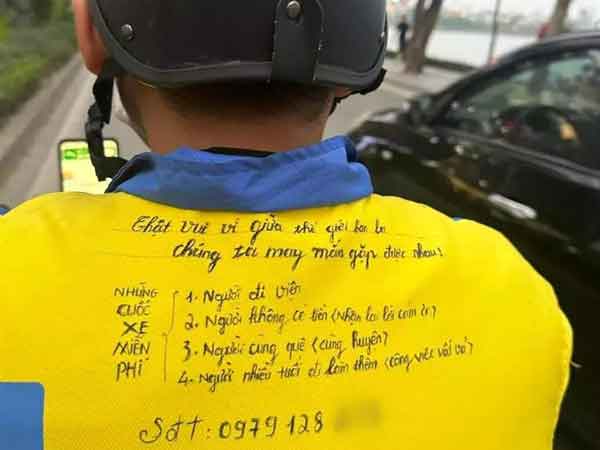 Thật vui vì giữa thế giới bao la
chúng ta may mắn gặp được nhau!
NHỮNG
CUỐC
XE
MIỄN
PHÍ
1. Người đi viện
2. Người không có tiền (Nhận lại lời cảm ơn)
3. Người cùng quê (cùng huyện)
4. Người nhiều tuổi đi làm thêm (công việc vất vả)
Sđt: 0979 128